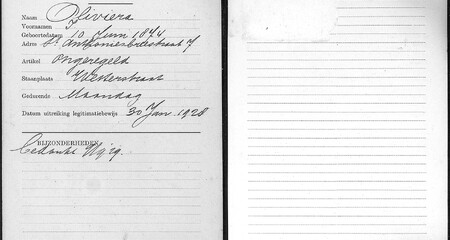 Naam Oliviera
Voornamen J
Geboortedatum 10 Juni 1874
Adres St Anthoniebreestraat 7
Artikel ongeregeld
Staanplaats Westerstraat
Gedurende Maandag
Datum uitreiking legitimatiebewijs 30 Jan. 1928
BIJZONDERHEDEN